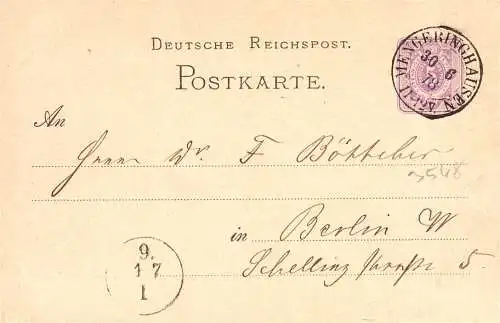 DEUTSCHE REICHSPOST.
POSTKARTE.
MENGERINGHAUSEN
30 6
78
An
Herrn Dr. F Böttcher
3548
in Berlin W
Schelling strasse 5
9.
1 7
1